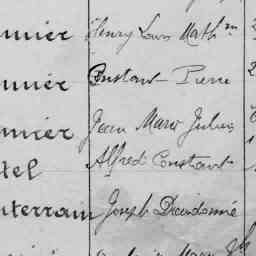 nnier Henry Louis Math
nnier Constant Pierre
nnier Jean Marie Julien
tel Alfred Constant
nterrain Joseph Dieudonné